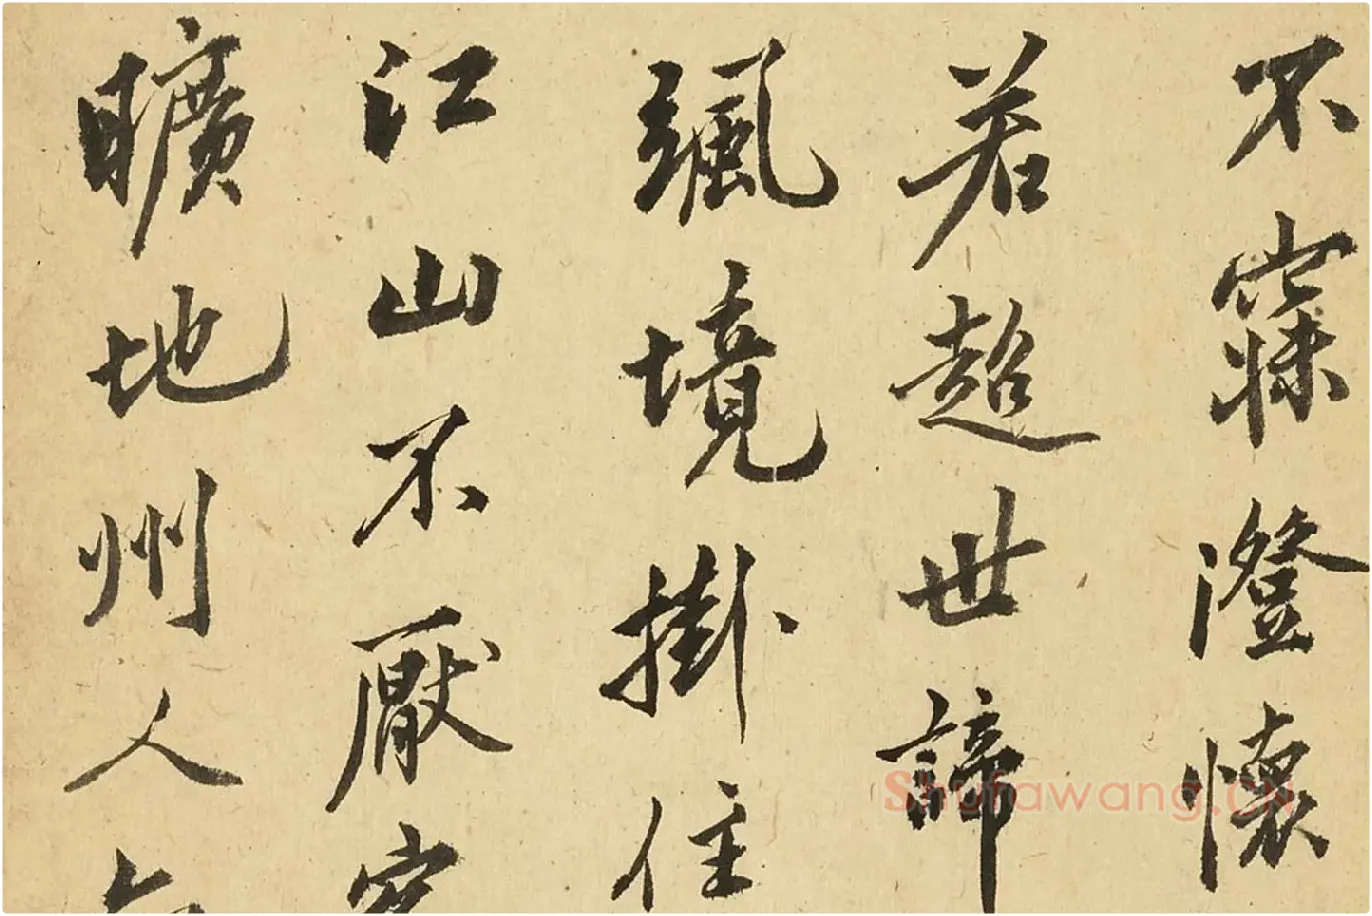 不寐澄懷
若超世諦
境掛住
江山不厭
曠地州人
Shufawang.cn